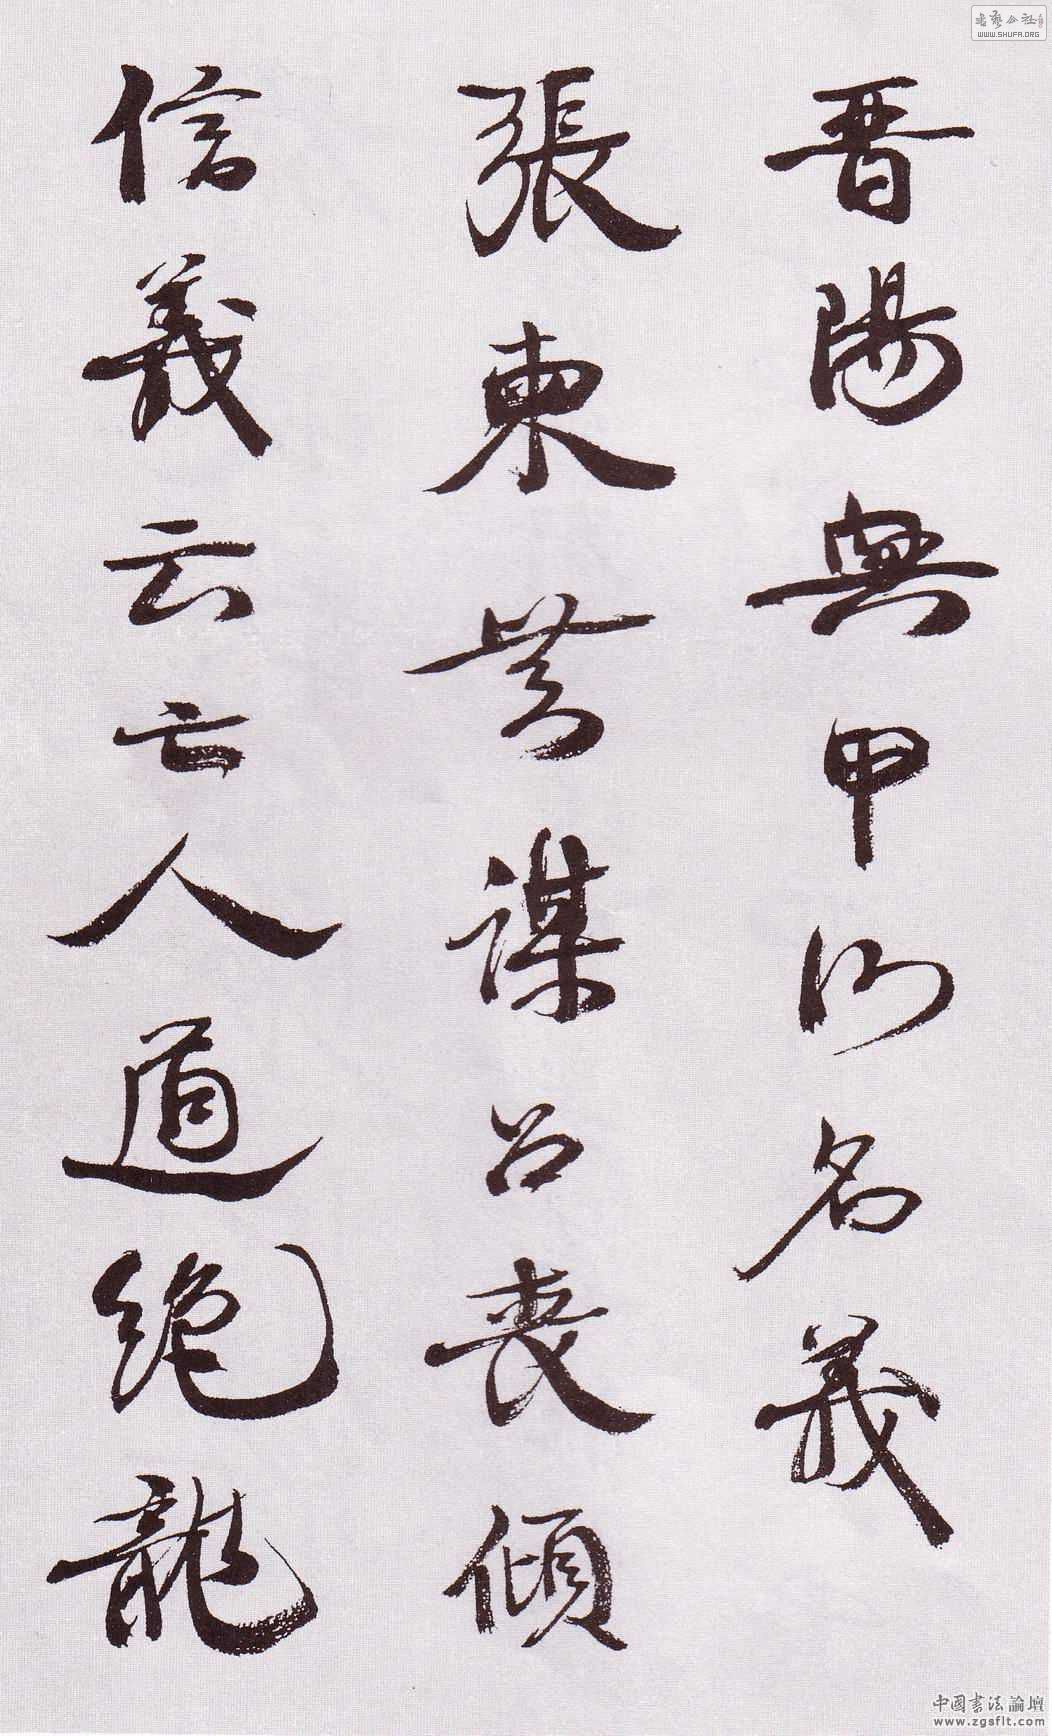 晋陽無甲以名義
張東焚謀召喪傾
信義云亡人道絕龍
書藝公社
WWW.SHUFA.ORG
中国書法論壇
www.zgsflt.com